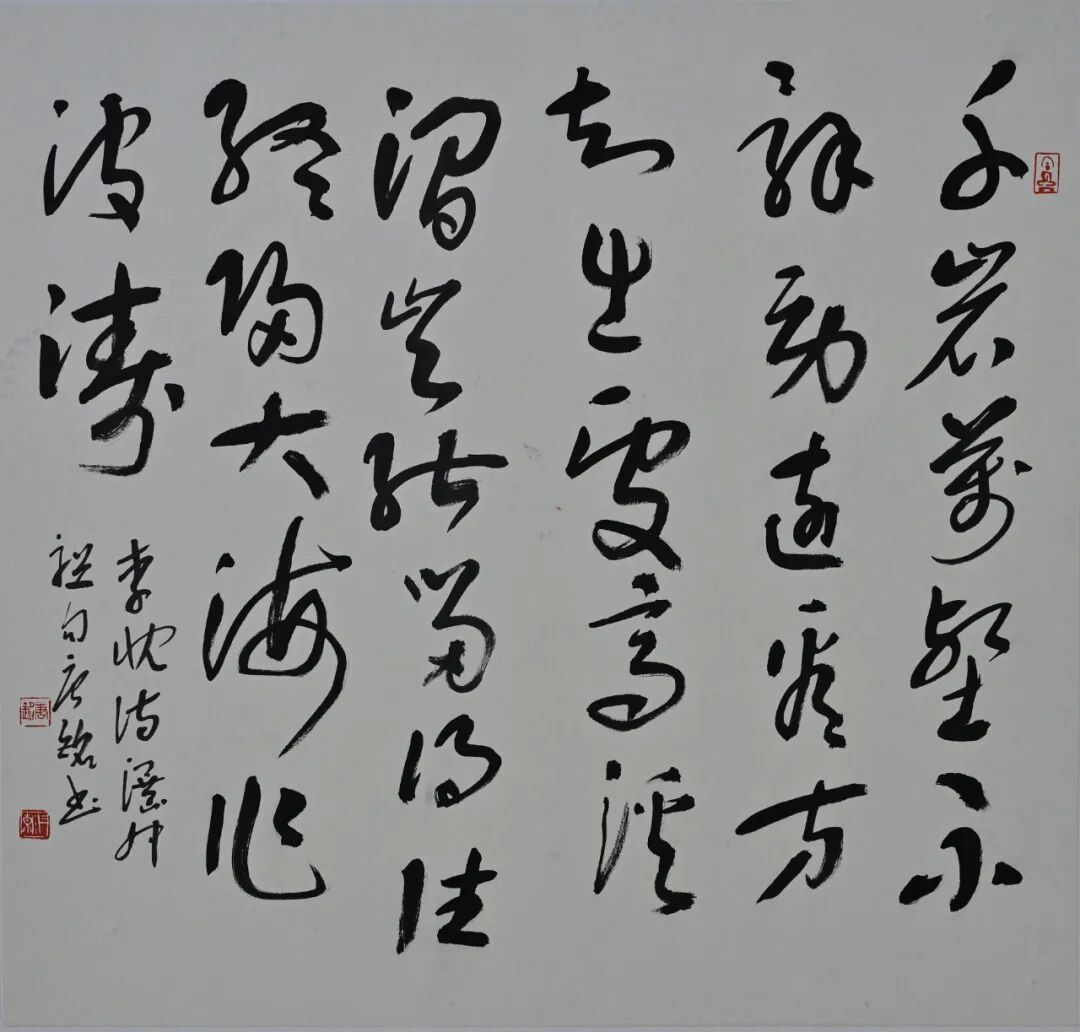 千岩萬壑不
辭勞遠看方
知出處高溪
澗豈能留得住
終歸大海作
波濤
李忱詩瀑布
聯句唐銘書